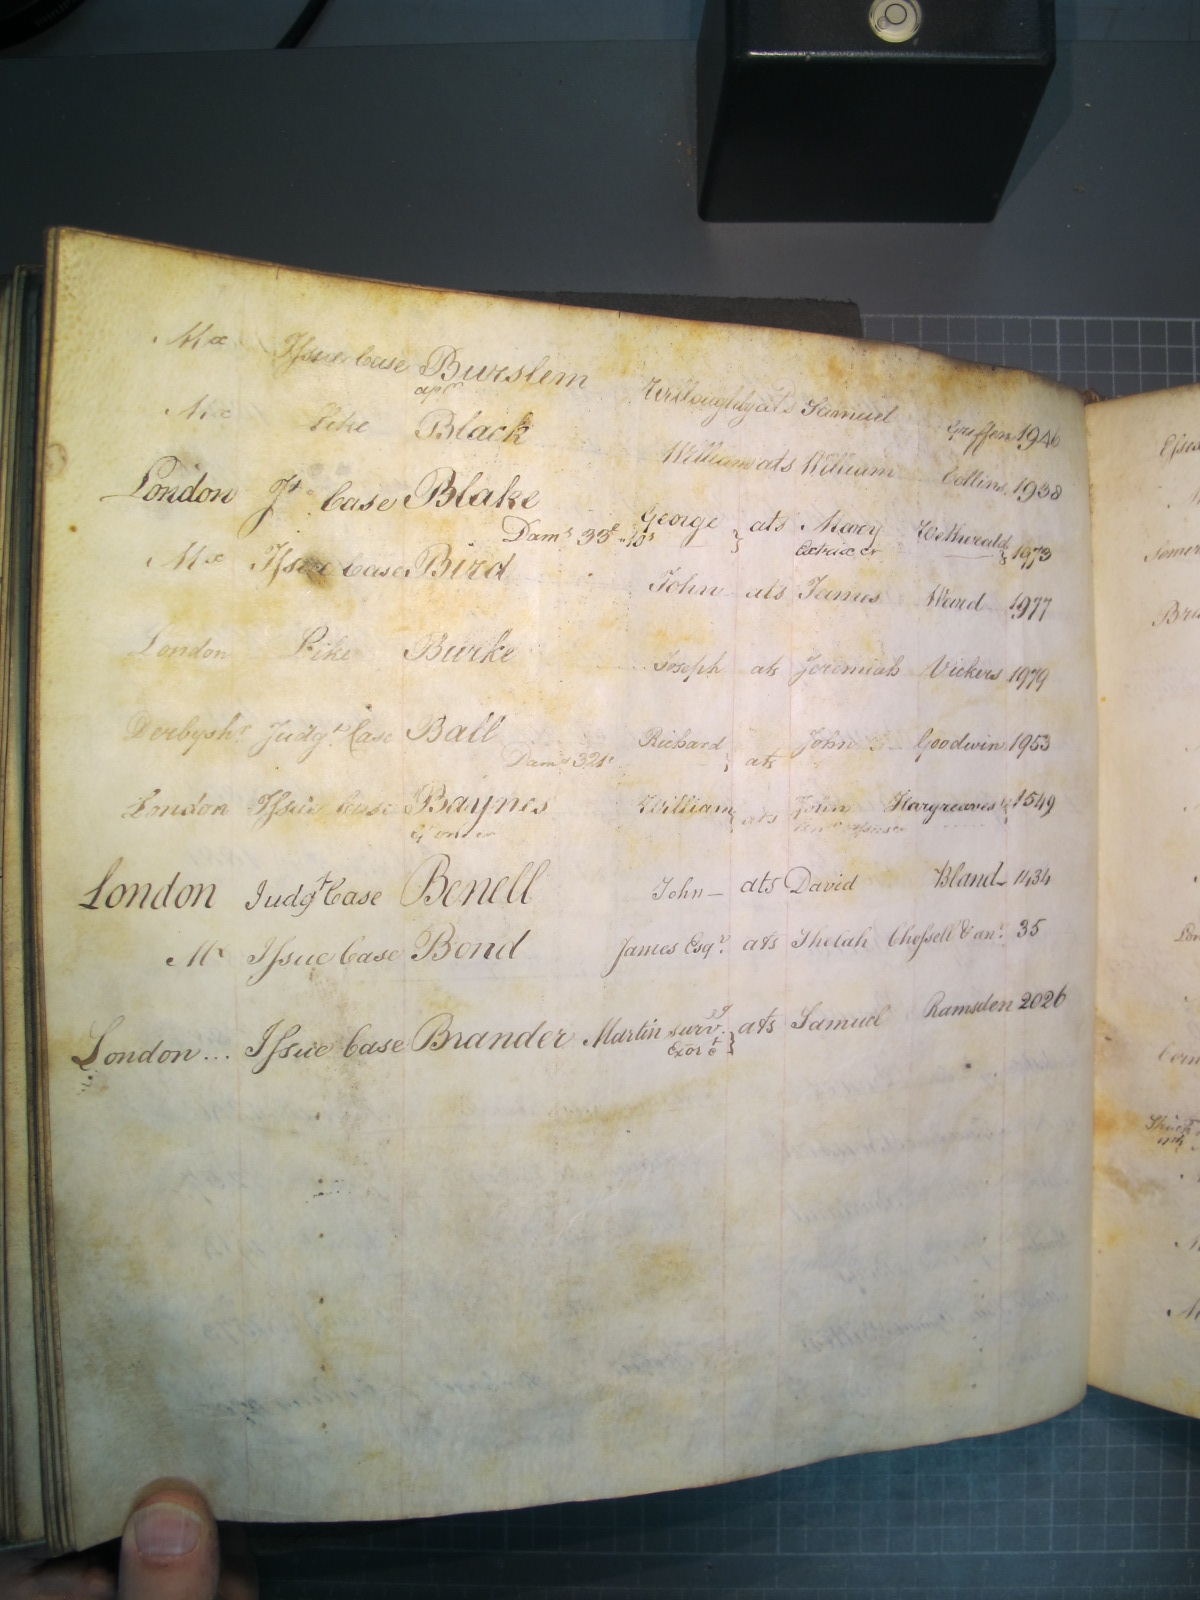 Mx Issue Case Burslem Willoughby ats Samuel Griffin 1946
Mx like Black William ats William Collins 1938
London Jt. Case Blake George } ats Mary Wetherald } 1973
Dams 35£ 10s Extrix &r
Mx Issue Case Bird John ats James Ward 1977
London Like Burke Joseph ats Jeremiah Vickers 1979
Derbyshr Judgt Case Ball Richard ats John Goodwin 1953
Dams
London Issue Case Baynes William } ats John Hargreaves 1549
London Judgt Case Benell John – ats David Bland – 1434
Mx Issue Case Bond James Esqr. ats Shelah Chessell & anr. 35
London... Issue Case Brander Martin survg } ats Samuel Ramsden 2026
Exor &c